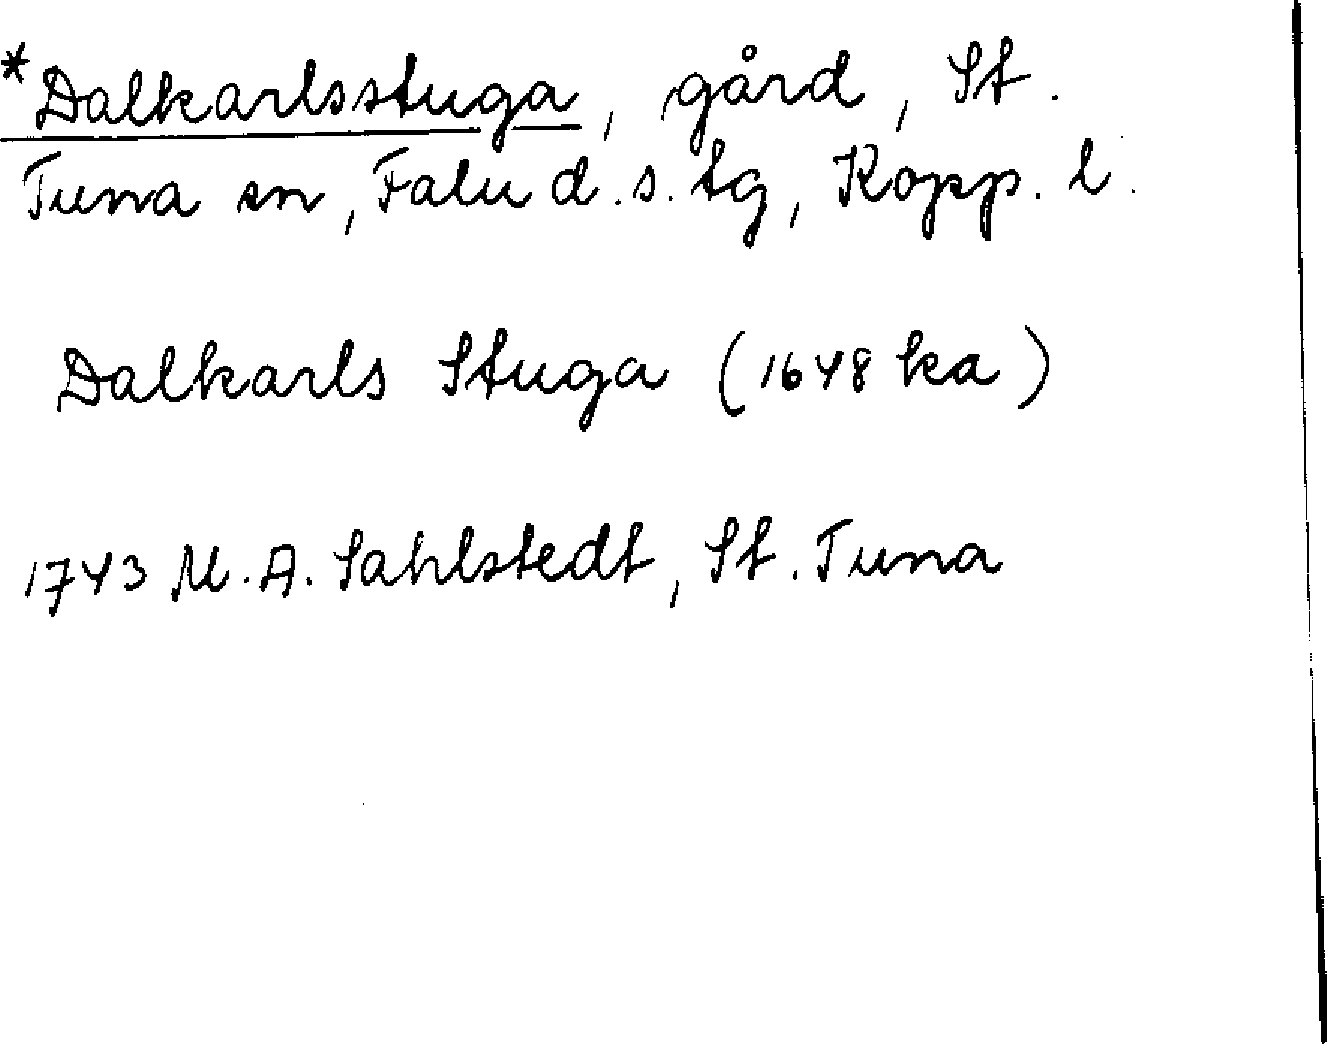 *Dalkarlsstuga, gård, St.
Tuna sn, Falu d.s. tg, Kopp. l.
Dalkarls Stuga (1648 ka)
1743 M.A. Sahlstedt, St. Tuna